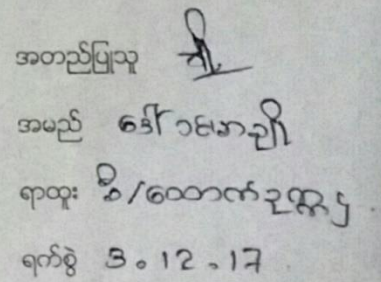 အတည်ပြုသူ
အမည် ဒေါ်ခင်မာချို
ရာထူး ဦး/ထောက်ဥက္ကဌ
ရက်စွဲ 3.12.17